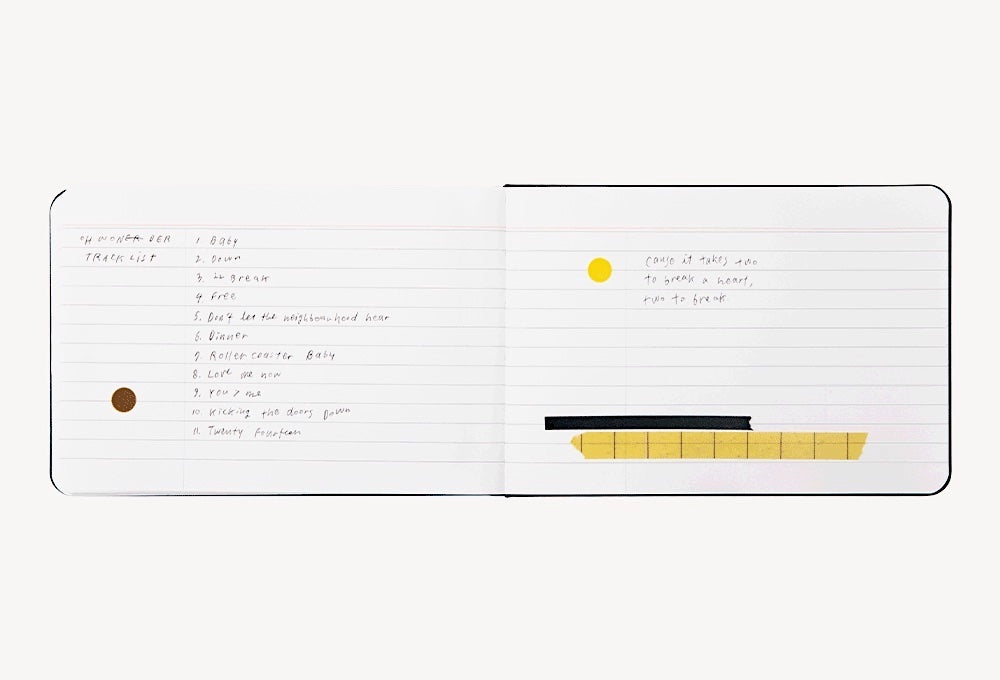 OH WONDER
TRACK LIST
1. Baby
2. Down
3. 22 Break
4. Free
5. Don't let the neighbourhood hear
6. Dinner
7. Rollercoaster Baby
8. Love me now
9. You > me
10. Kicking the doors Down
11. Twenty Fourteen
Cause it takes two
to break a heart,
two to break.